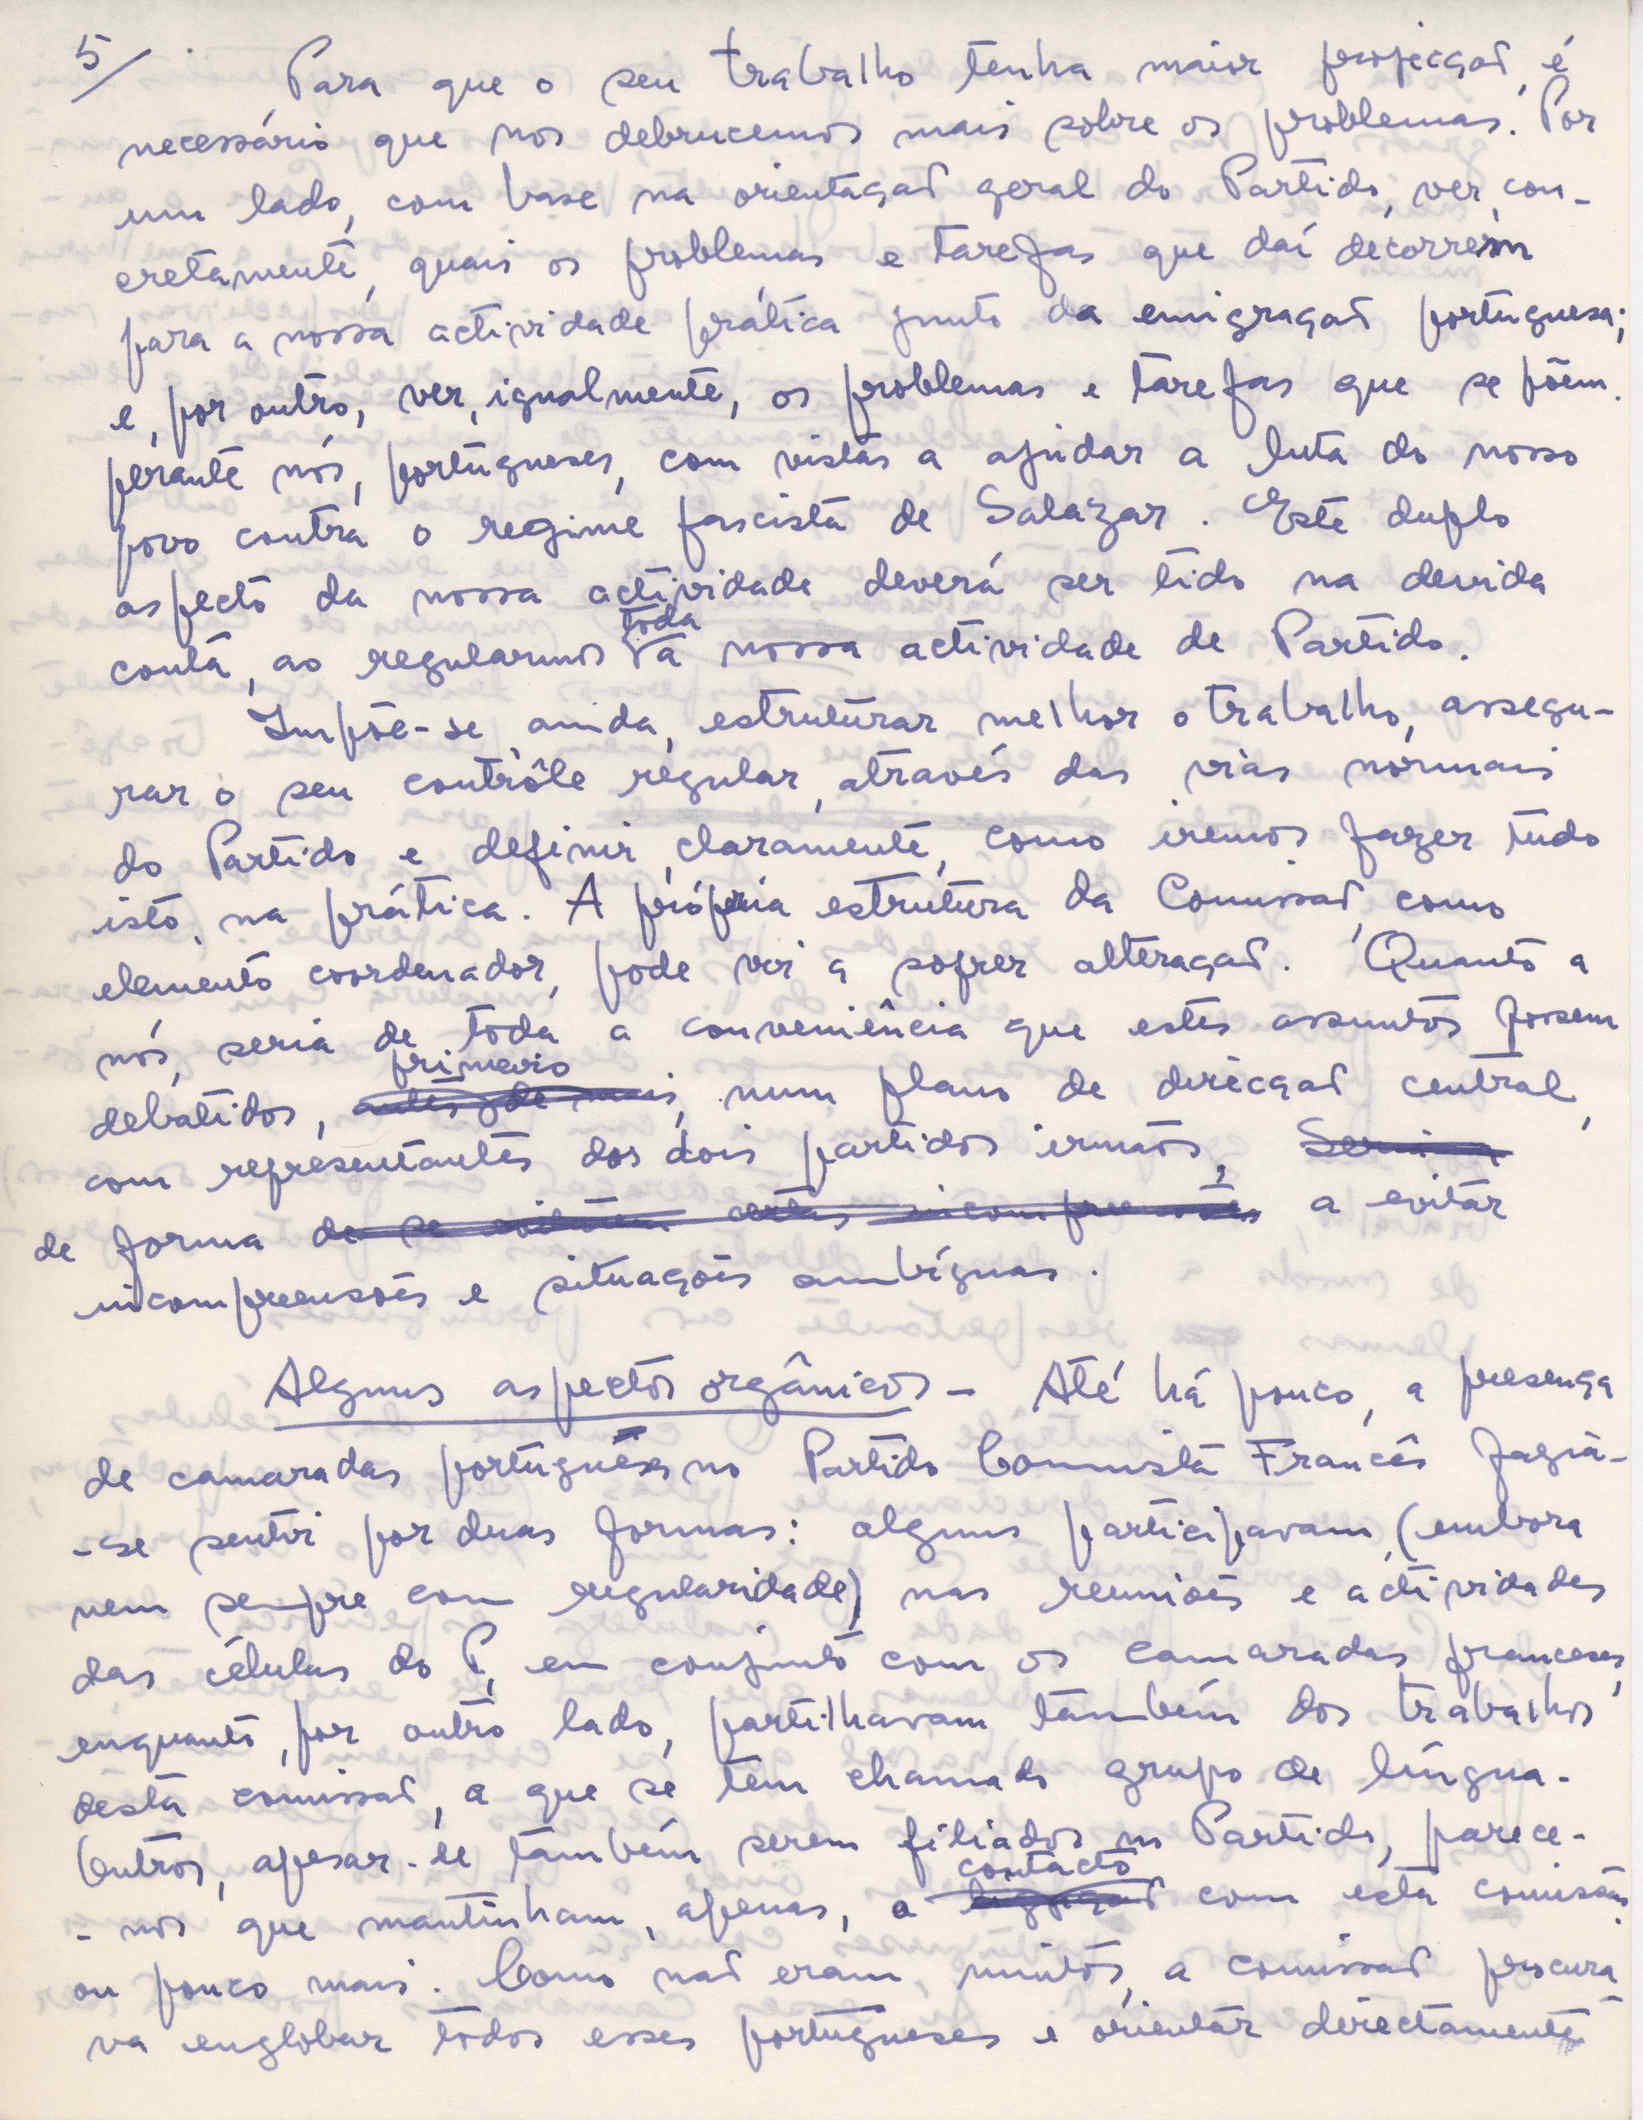 5/
Para que o seu trabalho tenha maior projecção, é
necessário que nos debrucemos mais sobre os problemas. Por
um lado, com base na orientação geral do Partido, ver, con-
cretamente, quais os problemas e tarefas que daí decorrem
para a nossa actividade prática junto da emigração portuguesa;
e, por outro, ver, igualmente, os problemas e tarefas que se põem
perante nós, portugueses, com vistas a ajudar a luta do nosso
povo contra o regime fascista de Salazar. Este duplo
aspecto da nossa actividade deverá ser tido na devida
conta, ao regularmos toda a nossa actividade de Partido.
Impõe-se ainda, estruturar melhor o trabalho, assegu-
rar o seu contrôle regular, através das vias normais
do Partido e definir, claramente, como iremos fazer tudo
isto, na prática. A própria estrutura da Comissão, como
elemento coordenador, pode vir a sofrer alteração. Quanto a
nós, seria de toda a conveniência que estes assuntos fossem
debatidos, antes de mais, primeiro num plano de direcção central,
com representantes dos dois partidos irmãos, Seria
de forma de se evitarem certas incompreensões a evitar
incompreensões e situações ambíguas.
Alguns aspectos orgânicos - Até há pouco, a presença
de camaradas portugueses no Partido Comunista Francês fazia-
-se sentir por duas formas: alguns participavam, (embora
nem sempre com regularidade) nas reuniões e actividades
das células do P, em conjunto com os camaradas franceses,
enquanto, por outro lado, partilhavam também dos trabalhos
desta comissão, a que se tem chamado grupo de língua.
Outros, apesar de também serem filiados no Partido, parece-
-nos que mantinham, apenas, o ligação contacto com esta comissão
ou pouco mais. Como não eram, muitos, a comissão procura
va englobar todos esses portugueses e orientar directamente